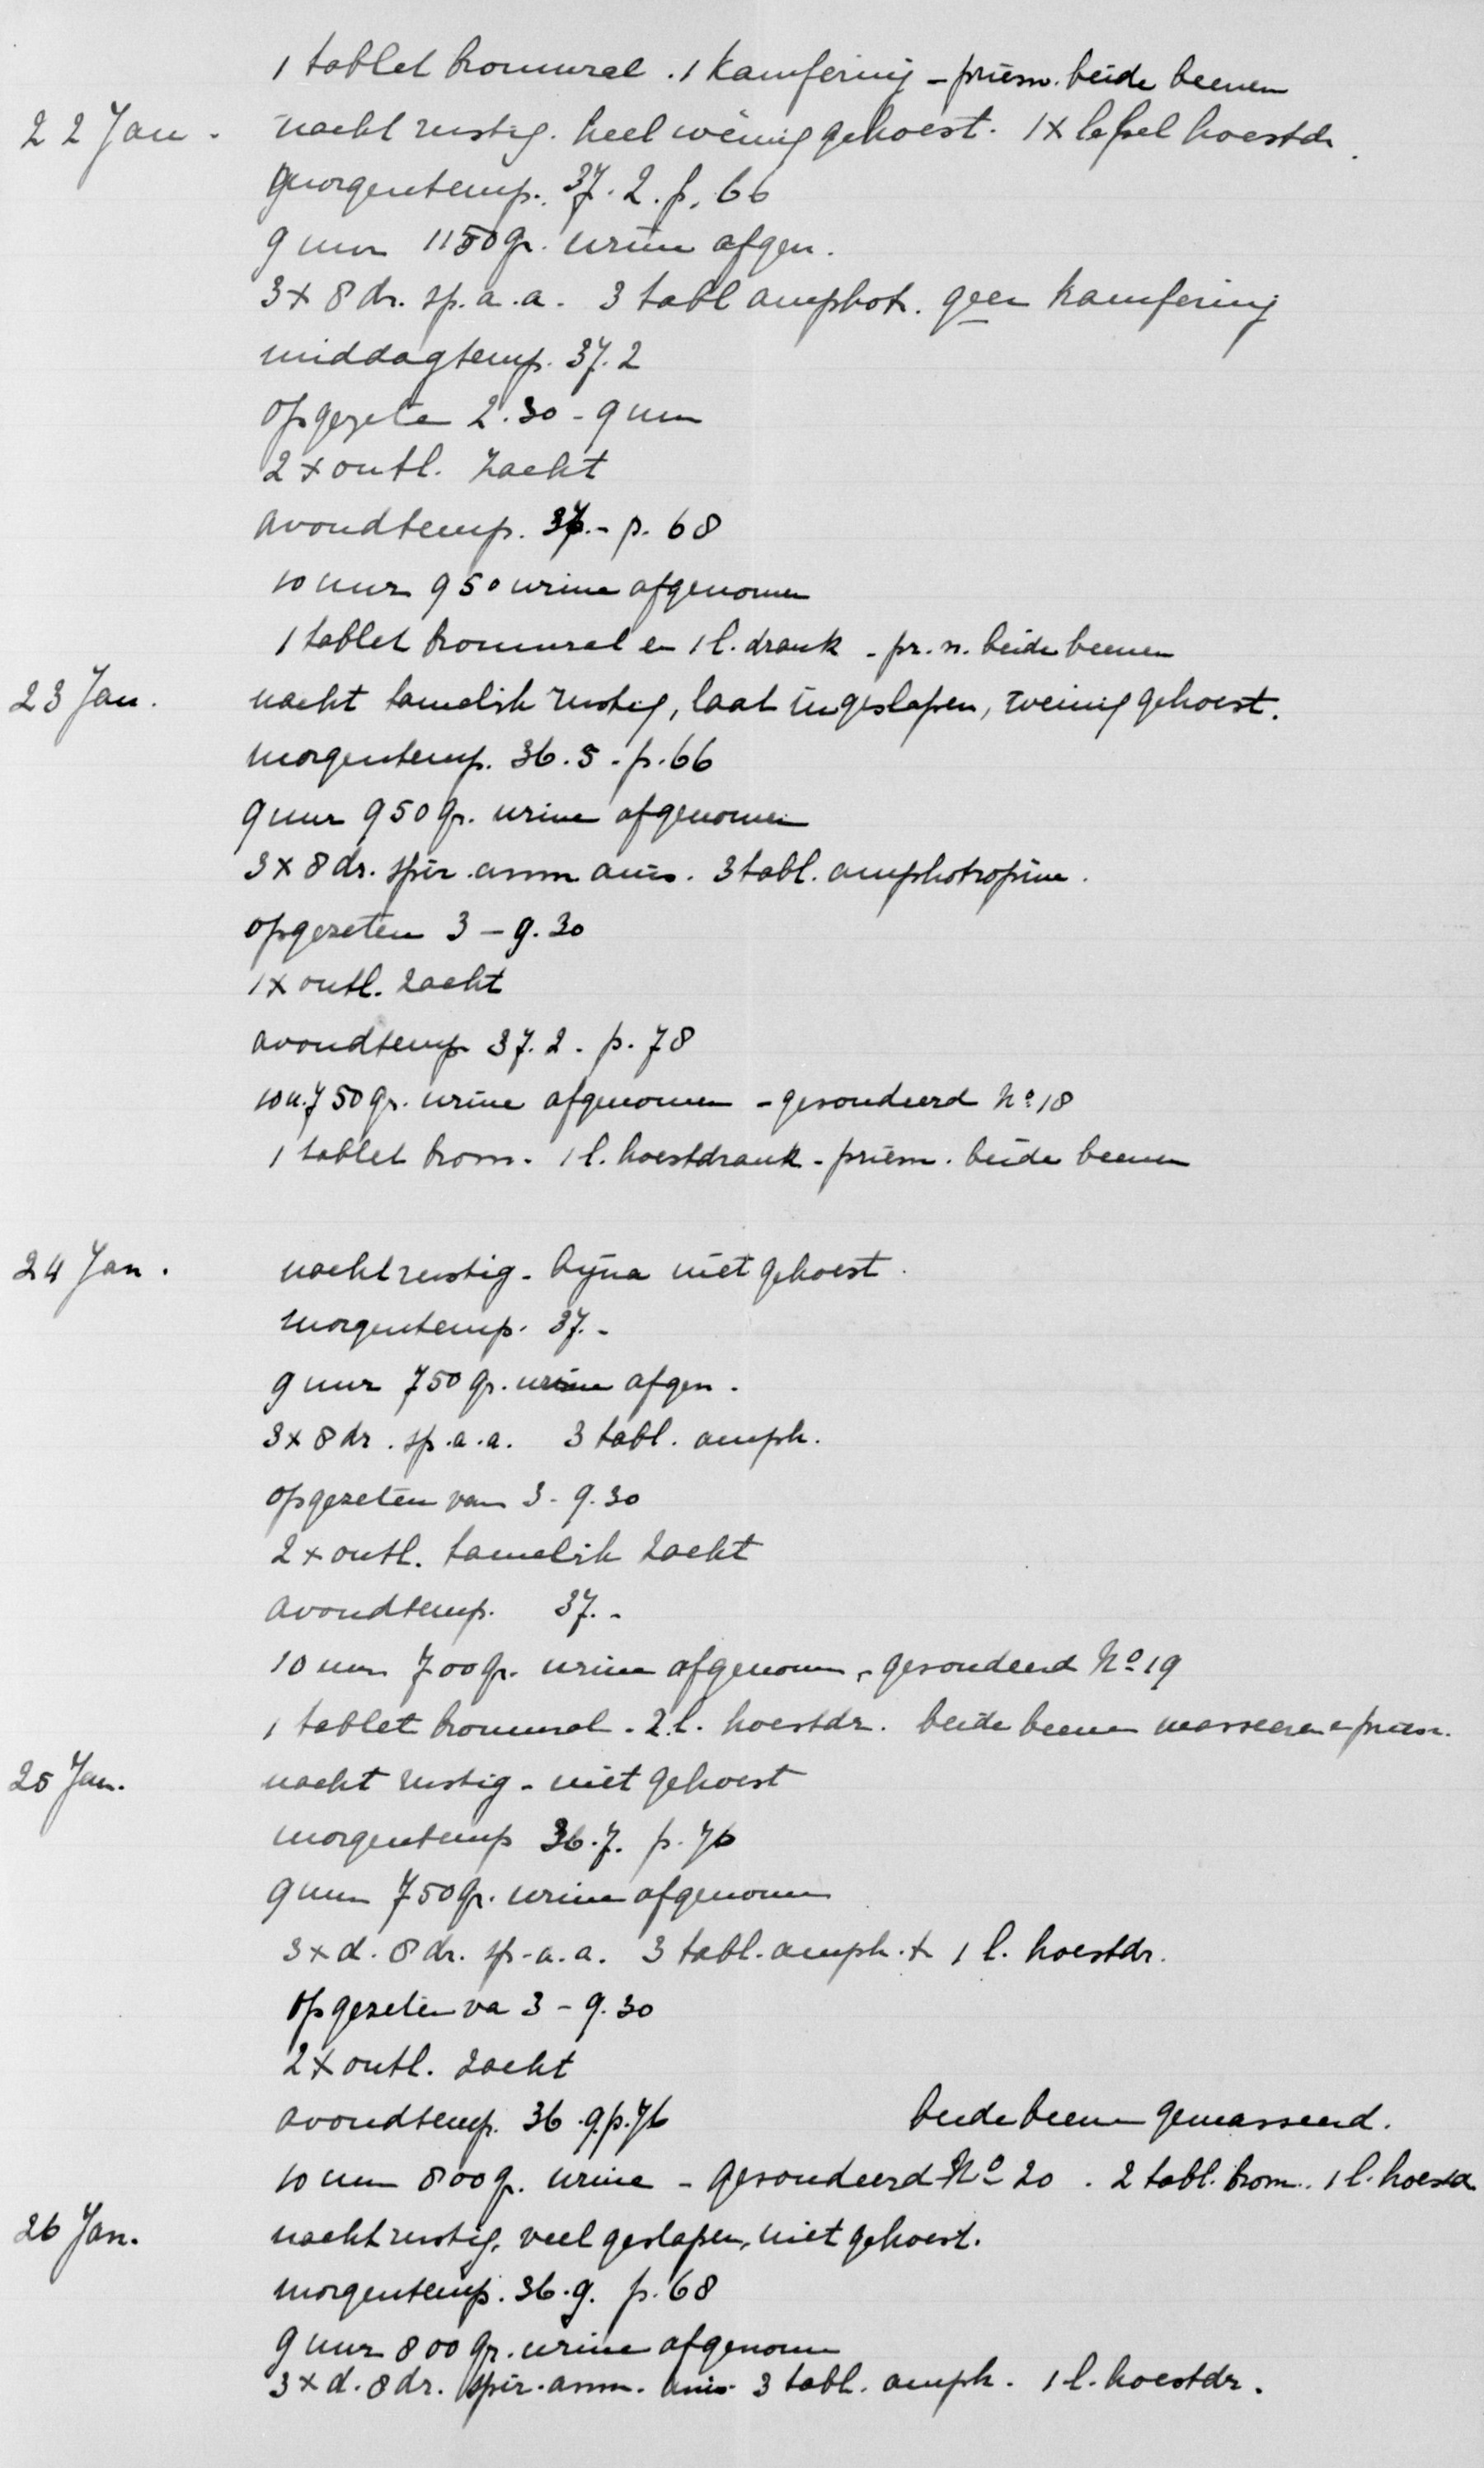 1 tablet bromural . 1 kamferinj - priesn. beide beenen
22 Jan. nacht rustig. heel weinig gehoest. 1 x lepel hoestdr.
morgentemp. 37.2. p. 66
9 uur 1150 gr. urine afgen.
3 x 8 dr. sp. a. a. 3 tabl amphotr. geen kamferinj
middagtemp. 37.2
opgezeten 2.30 - 9 uur
2 x ontl. zacht
avondtemp. 37.- p. 68
10 uur 950 urine afgenomen
1 tablet bromural en 1 l. drank - pr. n. beide beenen
23 Jan. nacht tamelijk rustig, laat ingeslapen, weinig gehoest.
morgentemp. 36.5 - p. 66
9 uur 950 gr. urine afgenomen
3 x 8 dr. spir. amm anis. 3 tabl. amphotropine.
opgezeten 3 - 9.30
1 x ontl. zacht
avondtemp 37.2. p. 78
10 u. 750 gr. urine afgenomen - gesondeerd No 18
1 tablet brom. 1 l. hoestdrank - priesn. beide beenen
24 Jan. nacht rustig - bijna niet gehoest.
morgentemp. 37.-
9 uur 750 gr. urine afgen.
3 x 8 dr. sp. a. a. 3 tabl. amph.
opgezeten van 3 - 9.30
2 x ontl. tamelijk zacht
avondtemp. 37.-
10 uur 700 gr. urine afgenomen - gesondeerd No 19
1 tablet bromural - 2 l. hoestdr. beide beenen masseeren en priesn.
25 Jan. nacht rustig - niet gehoest
morgentemp 36.7. p. 76
9 uur 750 gr. urine afgenomen
3 x d. 8 dr. sp. a. a. 3 tabl. amph. + 1 l. hoestdr.
opgezeten va 3 - 9.30
2 x ontl. zacht
avondtemp. 36.9 p. 76 beide beenen gemasseerd.
10 uur 800 gr. urine - gesondeerd No 20. 2 tabl. brom. 1 l. hoestd
26 Jan. nacht rustig, veel geslapen, niet gehoest.
morgentemp. 36.9. p. 68
9 uur 800 gr. urine afgenomen
3 x d. 8 dr. spir. amm. anis. 3 tabl. amph. 1 l. hoestdr.